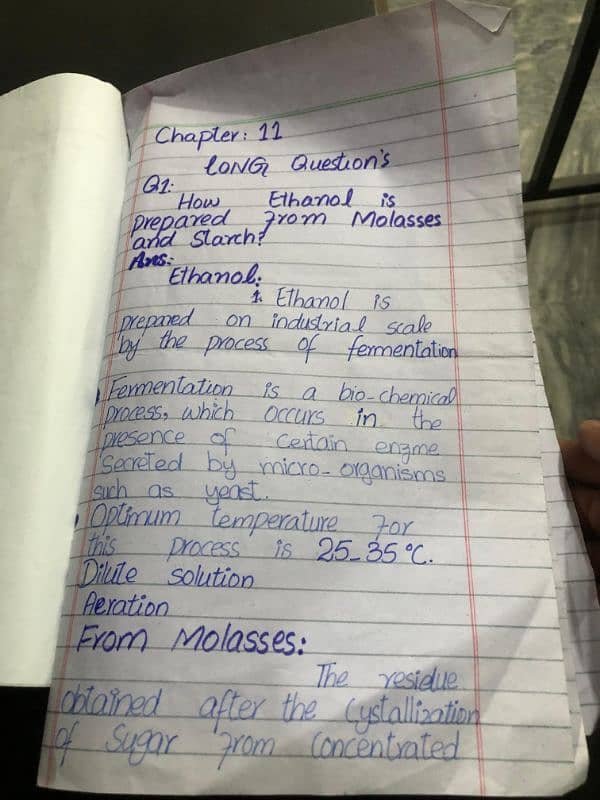 Chapter: 11
LONG Question's
Q1:
How Ethanol is
prepared from Molasses
and Starch?
Ans:
Ethanol:
1. Ethanol is
prepared on industrial scale
by the process of fermentation
• Fermentation is a bio-chemical
process, which occurs in the
presence of certain enzme
secreted by micro-organisms
such as yeast.
• Optimum temperature for
this process is 25-35°C.
Dilute solution
Aeration
From Molasses:
The residue
obtained after the Cystallization
of Sugar from Concentrated